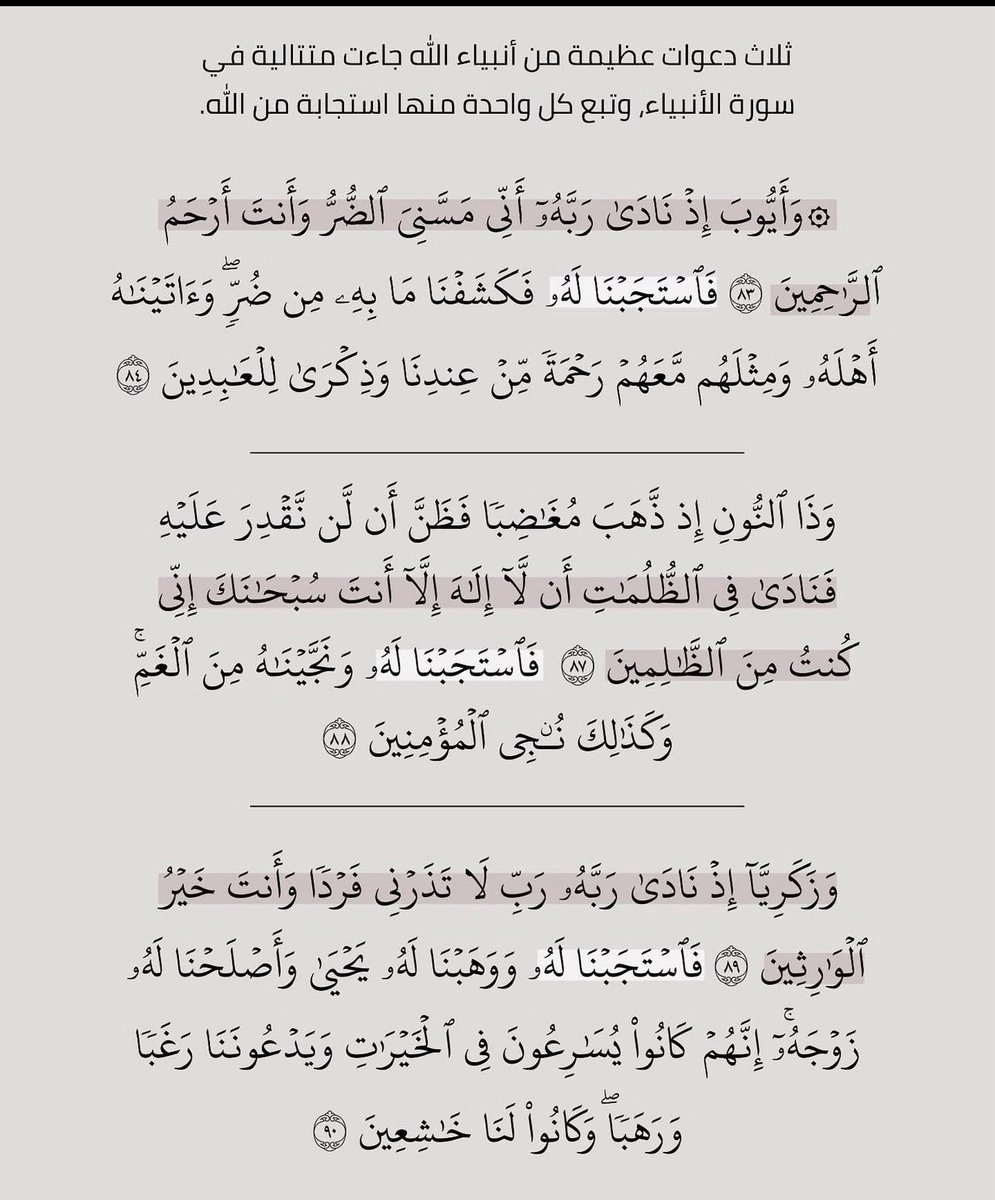 ثلاث دعوات عظيمة من أنبياء الله جاءت متتالية في
سورة الأنبياء، وتبع كل واحدة منها استجابة من الله.
۞وَأَيُّوبَ إِذۡ نَادَىٰ رَبَّهُۥٓ أَنِّي مَسَّنِيَ ٱلضُّرُّ وَأَنتَ أَرۡحَمُ
ٱلرَّٰحِمِينَ ٨٣ فَٱسۡتَجَبۡنَا لَهُۥ فَكَشَفۡنَا مَا بِهِۦ مِن ضُرّٖۖ وَءَاتَيۡنَٰهُ
أَهۡلَهُۥ وَمِثۡلَهُم مَّعَهُمۡ رَحۡمَةٗ مِّنۡ عِندِنَا وَذِكۡرَىٰ لِلۡعَٰبِدِينَ ٨٤
وَذَا ٱلنُّونِ إِذ ذَّهَبَ مُغَٰضِبٗا فَظَنَّ أَن لَّن نَّقۡدِرَ عَلَيۡهِ
فَنَادَىٰ فِي ٱلظُّلُمَٰتِ أَن لَّآ إِلَٰهَ إِلَّآ أَنتَ سُبۡحَٰنَكَ إِنِّي
كُنتُ مِنَ ٱلظَّٰلِمِينَ ٨٧ فَٱسۡتَجَبۡنَا لَهُۥ وَنَجَّيۡنَٰهُ مِنَ ٱلۡغَمِّۚ
وَكَذَٰلِكَ نُـۨجِي ٱلۡمُؤۡمِنِينَ ٨٨
وَزَكَرِيَّآ إِذۡ نَادَىٰ رَبَّهُۥ رَبِّ لَا تَذَرۡنِي فَرۡدٗا وَأَنتَ خَيۡرُ
ٱلۡوَٰرِثِينَ ٨٩ فَٱسۡتَجَبۡنَا لَهُۥ وَوَهَبۡنَا لَهُۥ يَحۡيَىٰ وَأَصۡلَحۡنَا لَهُۥ
زَوۡجَهُۥٓۚ إِنَّهُمۡ كَانُواْ يُسَٰرِعُونَ فِي ٱلۡخَيۡرَٰتِ وَيَدۡعُونَنَا رَغَبٗا
وَرَهَبٗاۖ وَكَانُواْ لَنَا خَٰشِعِينَ ٩٠